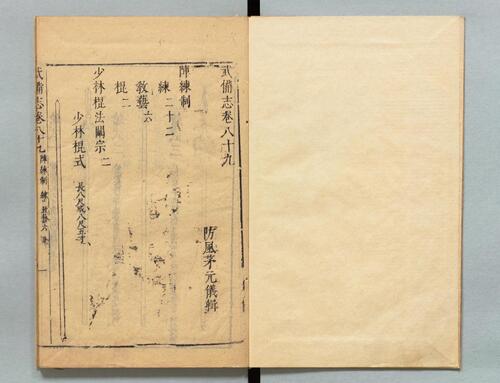 武備志卷八十九
防風茅元儀輯
陣練制
練二十二
教藝六
棍二
少林棍法闡宗二
少林棍式
長八尺或八尺五寸
武備志卷八十九
陣練制